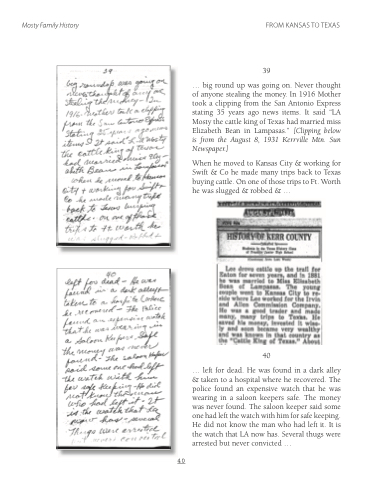 Mosty Family History
FROM KANSAS TO TEXAS
39
big roundup was going on
never thought of any one
Stealing the money - In
1916 Mother took a clipping
from the San Antonio Express
Stating 35 years ago news
items It said L A Mosty
the cattle king of Texas
had married Miss Eliz-
abeth Bean in Lampasas
When he moved to Kansas
City & working for Swift &
Co he made many trips
back to Texas buying
cattle - on one of those
trips to Ft. Worth he
was slugged & robbed &
40
left for dead - He was
found in a dark alley &
taken to a hospital where
he recovered - The police
found an expensive watch
that he was wearing in
a saloon keepers safe
the money was never
found - The saloon keeper
said some one had left
the watch with him
for safe keeping He did
not know the man
who had left it - It
is the watch that LA
now has - several
Thugs were arrested
but never convicted
39
… big round up was going on. Never thought
of anyone stealing the money. In 1916 Mother
took a clipping from the San Antonio Express
stating 35 years ago news items. It said "LA
Mosty the cattle king of Texas had married miss
Elizabeth Bean in Lampasas." [Clipping below
is from the August 8, 1931 Kerrville Mtn. Sun
Newspaper.]
When he moved to Kansas City & working for
Swift & Co he made many trips back to Texas
buying cattle. On one of those trips to Ft. Worth
he was slugged & robbed & …
HISTORY OF KERR COUNTY
Lee drove cattle up the trail for
Eaton for seven years, and in 1881
he was married to Miss Elizabeth
Bean of Lampasas. The young
people went to Kansas City to re-
side where Lee worked for the Irvin
and Allen Commission Company.
He was a good trader and made
many, many trips to Texas. He
saved his money, invested it wise-
ly and soon became very wealthy
and was known in that country as
the "Cattle King of Texas." About
40
… left for dead. He was found in a dark alley
& taken to a hospital where he recovered. The
police found an expensive watch that he was
wearing in a saloon keepers safe. The money
was never found. The saloon keeper said some
one had left the watch with him for safe keeping.
He did not know the man who had left it. It is
the watch that LA now has. Several thugs were
arrested but never convicted …
40